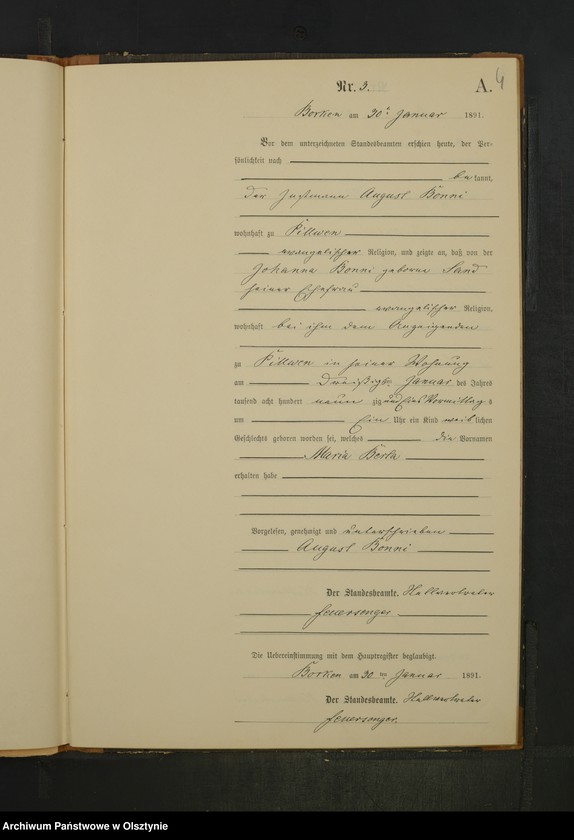 4
Nr. 3.
A.
Borken am 30ten Januar 1891.
Vor dem unterzeichneten Standesbeamten erschien heute, der Per-
sönlichkeit nach
be kannt,
der Instmann August Bonni
wohnhaft zu Pillwen
evangelischer Religion, und zeigte an, daß von der
Johanna Bonni geborene Sand
seiner Ehefrau
evangelischer Religion,
wohnhaft bei ihm dem Anzeigenden
zu Pillwen in seiner Wohnung
am Dreißigten Januar des Jahres
tausend acht hundert neun zig und Eins Vormittag s
um Ein Uhr ein Kind weib lichen
Geschlechts geboren worden sei, welches die Vornamen
Maria Berta
erhalten habe
Vorgelesen, genehmigt und unterschrieben
August Bonni
Der Standesbeamte.
Feuersenger
Die Uebereinstimmung mit dem Hauptregister beglaubigt.
Borken am 30 ten Januar 1891.
Der Standesbeamte.
Feuersenger.
Archiwum Państwowe w Olsztynie